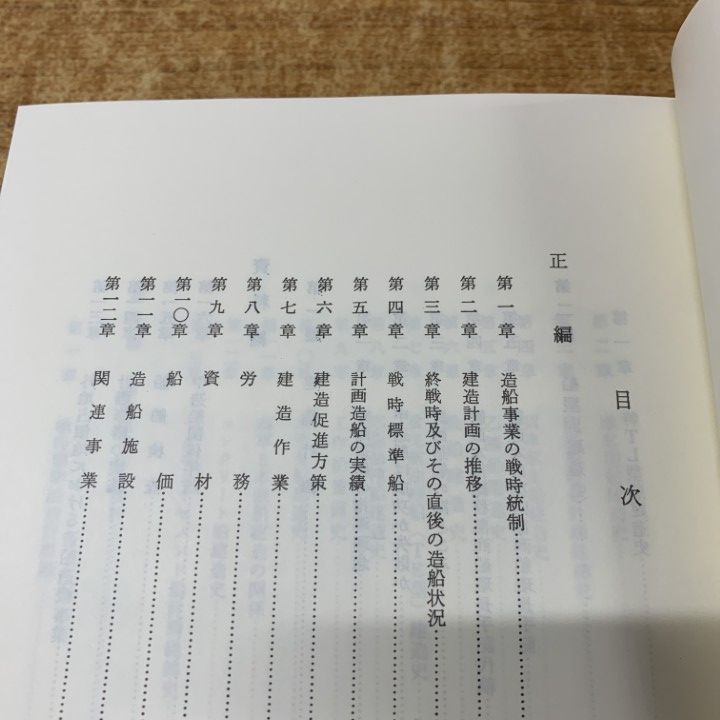 目次
正編
第一章 造船事業の戦時統制
第二章 建造計画の推移
第三章 終戦時及びその直後の造船状況
第四章 戦時標準船
第五章 計画造船の実績
第六章 建造促進方策
第七章 建造作業
第八章 労務
第九章 資材
第一〇章 船価
第一一章 造船施設
第一二章 関連事業